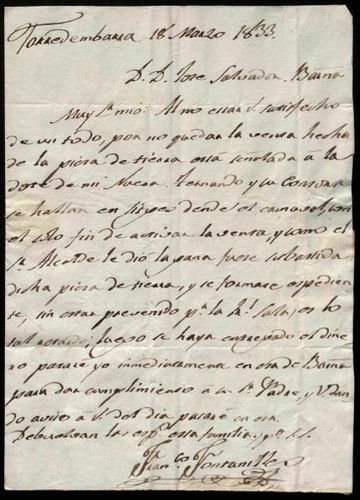 Torredembarra 18 Marzo 1833.
D. D. Jose Salvador Barna
Muy Sr mio: Al no estar V. satisfecho
de un todo, por no quedar la venta hecha
de la pieza de tierra está señalada a la
dote de mi Nuera. Fernando y su Consorte
se hallan en Sitges desde el carnaval, con
el solo fin de activar la venta, y como el
Sr. Alcalde le dió la para fuese subastada
dicha pieza de tierra, y se formase expedien-
te, sin estar prevenido pr. la Rl.
luego se haya el dine
ro pasaré yo inmediatamente en esa de Barna
para dar cumplimiento a su Sr. Padre, y V. dan
do aviso a V. del dia pasaré en esa.
Debuelvan las esta familia, y
Franco. Fontanilles